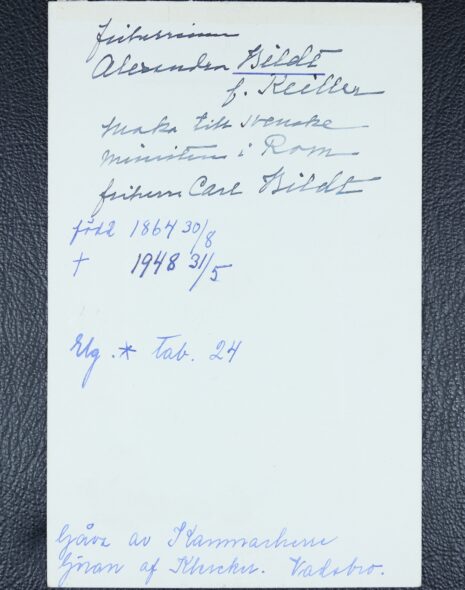 friherrinnan
Alexandra Bildt
f. Keiller
maka till svenske
ministern i Rom
friherre Carl Bildt
född 1864 30/8
† 1948 31/5
Elg. * tab. 24
Gåva av Kammarherre
Göran af Klercker. Vadsbro.